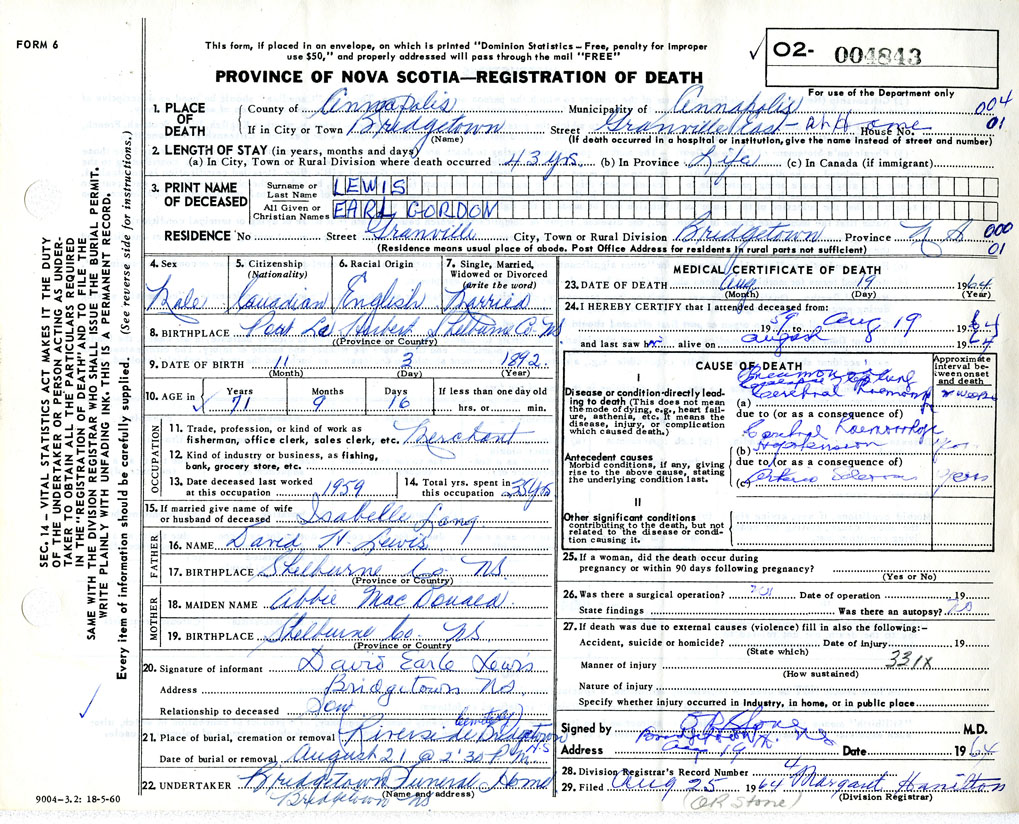 FORM 6
This form, if placed in an envelope, on which is printed "Dominion Statistics – Free, penalty for improper
use $50," and properly addressed will pass through the mail "FREE"
✓ O2- 004843
For use of the Department only
PROVINCE OF NOVA SCOTIA—REGISTRATION OF DEATH
004
01
1. PLACE OF DEATH
County of Annapolis Municipality of Annapolis
If in City or Town Bridgetown Street Granville East - At Home House No.
(Name) (If death occurred in a hospital or institution, give the name instead of street and number)
2. LENGTH OF STAY (in years, months and days)
(a) In City, Town or Rural Division where death occurred 43 yrs (b) In Province Life (c) In Canada (if immigrant)
3. PRINT NAME OF DECEASED
Surname or Last Name LEWIS
All Given or Christian Names EARL GORDON
RESIDENCE No Street Granville City, Town or Rural Division Bridgetown Province N S 000
01
(Residence means usual place of abode. Post Office Address for residents in rural parts not sufficient)
4. Sex Male
5. Citizenship (Nationality) Canadian
6. Racial Origin English
7. Single, Married, Widowed or Divorced (write the word) Married
8. BIRTHPLACE Port La Herbert Shelburne Co. NS
(Province or Country)
9. DATE OF BIRTH 11 3 1892
(Month) (Day) (Year)
10. AGE in ✓ Years 71 Months 9 Days 16 If less than one day old hrs. or min.
OCCUPATION
11. Trade, profession, or kind of work as fisherman, office clerk, sales clerk, etc. Merchant
12. Kind of industry or business, as fishing, bank, grocery store, etc.
13. Date deceased last worked at this occupation 1959
14. Total yrs. spent in this occupation 35 yrs
15. If married give name of wife or husband of deceased Isabelle Lang
FATHER
16. NAME David H. Lewis
17. BIRTHPLACE Shelburne Co. NS.
(Province or Country)
MOTHER
18. MAIDEN NAME Abbie MacDonald
19. BIRTHPLACE Shelburne Co. NS
20. Signature of informant David Earle Lewis
Address Bridgetown NS.
Relationship to deceased Son
21. Place of burial, cremation or removal Riverside Cemetery Bridgetown N.S
Date of burial or removal August 21 @ 2:30 P.M.
22. UNDERTAKER Bridgetown Funeral Home
(Name and address)
Bridgetown NS
9004-3.2: 18-5-60
MEDICAL CERTIFICATE OF DEATH
23. DATE OF DEATH Aug 19 1964
(Month) (Day) (Year)
24. I HEREBY CERTIFY that I attended deceased from:
1959 to Aug 19 1964
and last saw him alive on 1964
CAUSE OF DEATH
Approximate interval between onset and death
I
Disease or condition directly leading to death (This does not mean the mode of dying, e.g., heart failure, asthenia, etc. It means the disease, injury, or complication which caused death.)
(a) Cerebral Haemorrhage
due to (or as a consequence of)
Antecedent causes
Morbid conditions, if any, giving rise to the above cause, stating the underlying condition last.
Cerebral Haemorrhage
(b) Hypertension
due to (or as a consequence of)
(c) Arterio Sclerosis years
II
Other significant conditions
contributing to the death, but not related to the disease or condition causing it.
25. If a woman, did the death occur during
pregnancy or within 90 days following pregnancy?
(Yes or No)
26. Was there a surgical operation? Date of operation 19
State findings Was there an autopsy? no
27. If death was due to external causes (violence) fill in also the following:–
Accident, suicide or homicide? Date of injury 19
(State which)
331X
Manner of injury
(How sustained)
Nature of injury
Specify whether injury occurred in Industry, in home, or in public place
Signed by O R Stone M.D.
Address Bridgetown N.S.
Aug 19 Date 1964
28. Division Registrar's Record Number 4
29. Filed Aug 25 1964 Margaret Hamilton
(Division Registrar)
(OR Stone)
SEC. 14 – VITAL STATISTICS ACT MAKES IT THE DUTY
OF THE UNDERTAKER OR PERSON ACTING AS UNDER-
TAKER TO OBTAIN ALL THE PARTICULARS REQUIRED
IN THE "REGISTRATION OF DEATH" AND TO FILE THE
SAME WITH THE DIVISION REGISTRAR WHO SHALL ISSUE THE BURIAL PERMIT.
WRITE PLAINLY WITH UNFADING INK. THIS IS A PERMANENT RECORD.
Every item of information should be carefully supplied. (See reverse side for instructions.)
✓